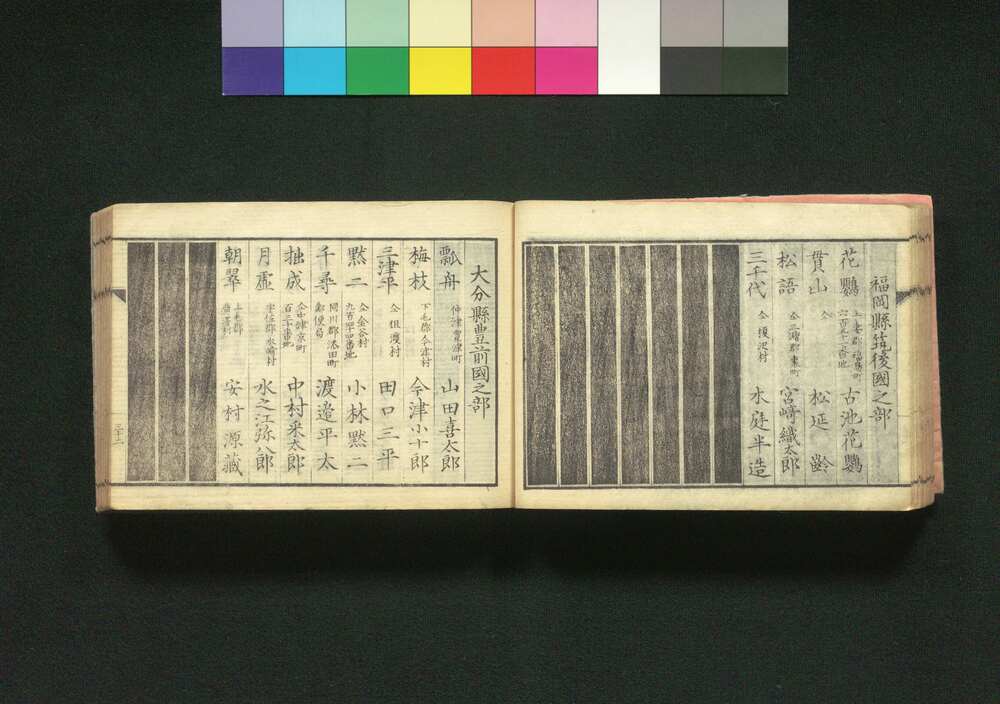 福岡縣筑後國之部
花鸚 上妻郡福島町 古池花鸚
貫山 仝 松延齡
松語 仝三潴郡東町 宮﨑織太郎
三千代 仝 榎沢村 水庭半造
大分縣豊前國之部
瓢舟 山田喜太郎
梅枝 下毛郡今津村 今津小十郎
三津平 仝 俎渡村 田口三平
黙二 仝金谷村九百四十四番地 小林黙二
千尋 郵便局 渡邉平太
拙成 仝中津京町百三十番地 中村釆太郎
月虚 宇佐郡水﨑村 水之江弥八郎
朝翠 上毛郡 安村源藏
三十六